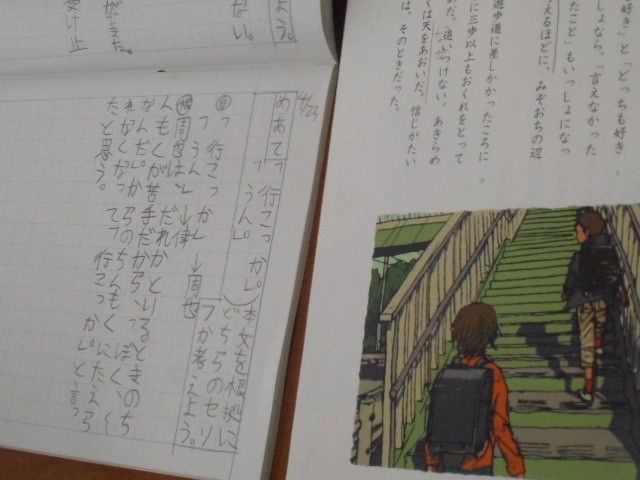 好き」と「どっちも好き」。
しょなら、「言えなかった
たこと」もいっしょになっ
えるほどに、みぞおちの辺
遊歩道に差しかかったころに、
に三歩以上もおくれをとって
めだ。追いつけない。あきらめ
くは天をあおいだ。信じがたい
は、そのときだった。
よう。
ない。
ができた。
受け止
4/23
めあて「行こっか。」
「うん。」
本文を根拠に
どちらのセリ
フか考えよう。
自「行こっか」→周也
「うん」→律
周也は、だれかといるときのち
んもくが苦手だから、「ぼく、
なんだ。」からのちんもくにたえら
れなくなって「行こっか。」と言っ
たと思う。